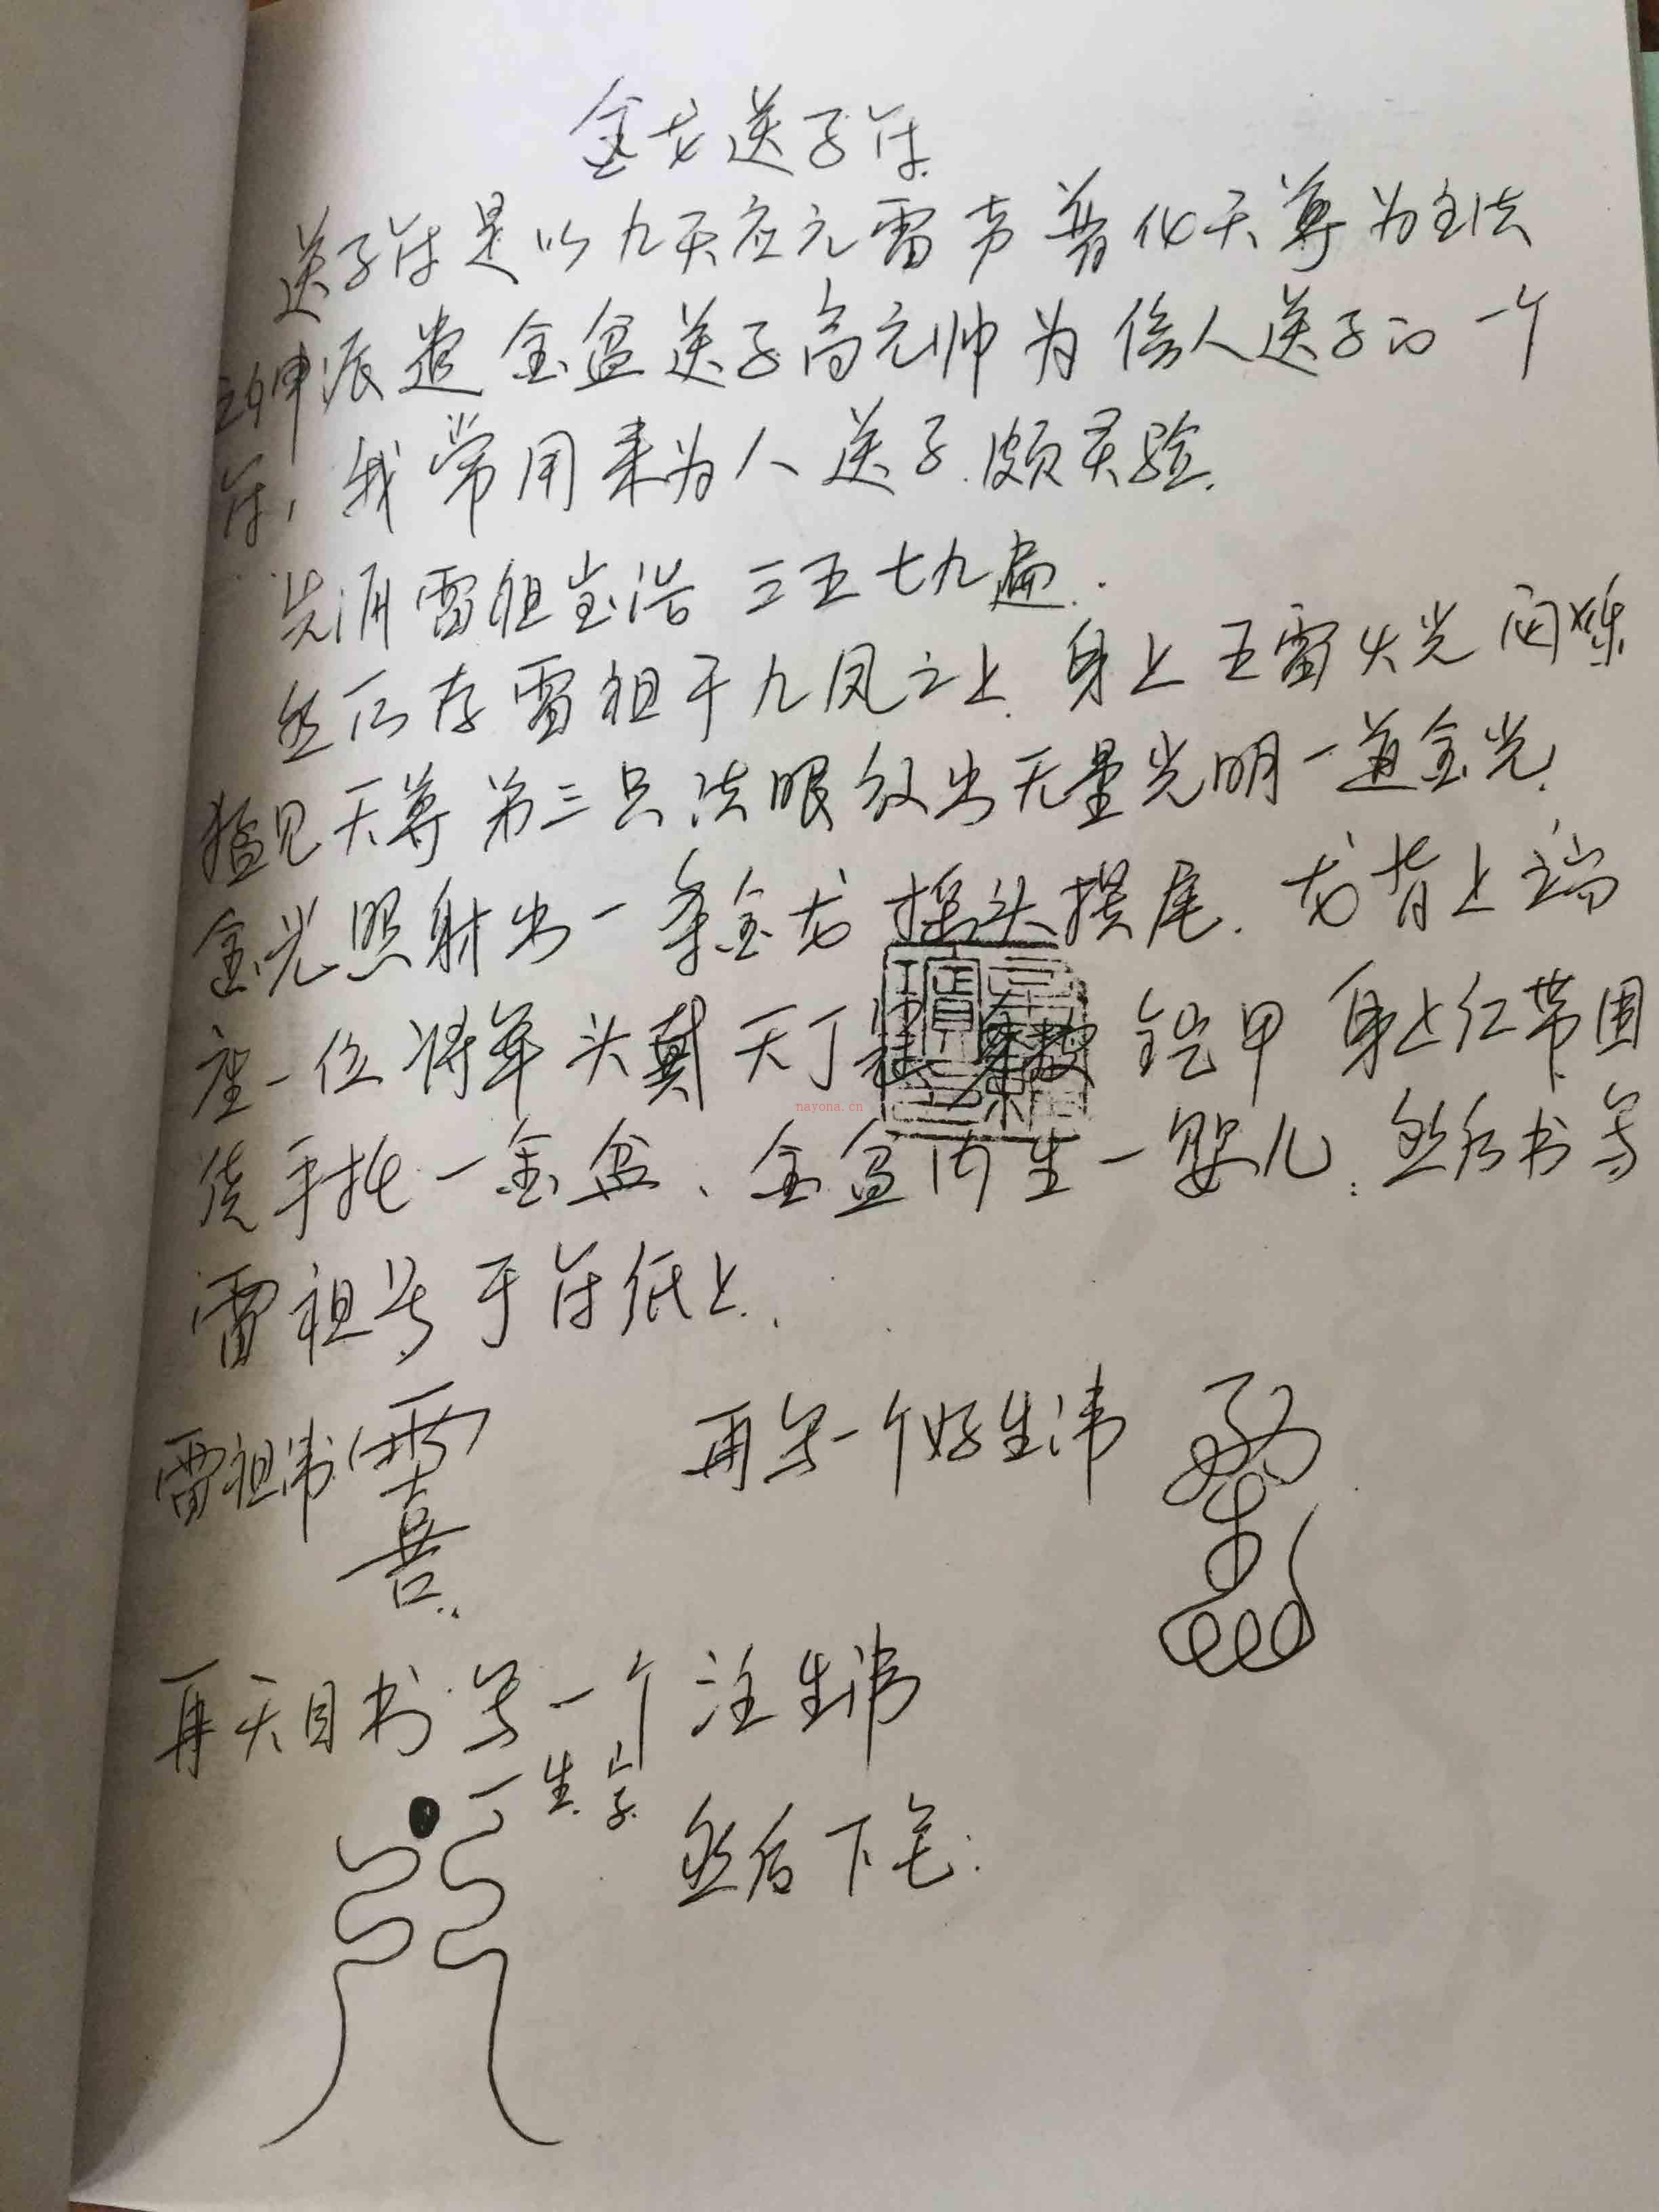 金龙送子符
送子符是以九天应元雷声普化天尊为主法
主神派遣金盆送子高元帅为信人送子的一个
符，我常用来为人送子.颇灵验.
先诵雷祖宝诰三五七九遍.
然后存雷祖于九凤之上.身上五雷火光闪烁
猛见天尊第三只法眼放出无量光明一道金光.
金光照射出一条金龙摇头摆尾.龙背上端
座一位将军头戴天丁 铠甲身上红带围
绕手托一金盆、金盆内生一婴儿:然后书写
雷祖号于符纸上.
雷祖讳
再写一个好生讳
再天目书写一个注生讳
生字
然后下笔:
nayona.cn